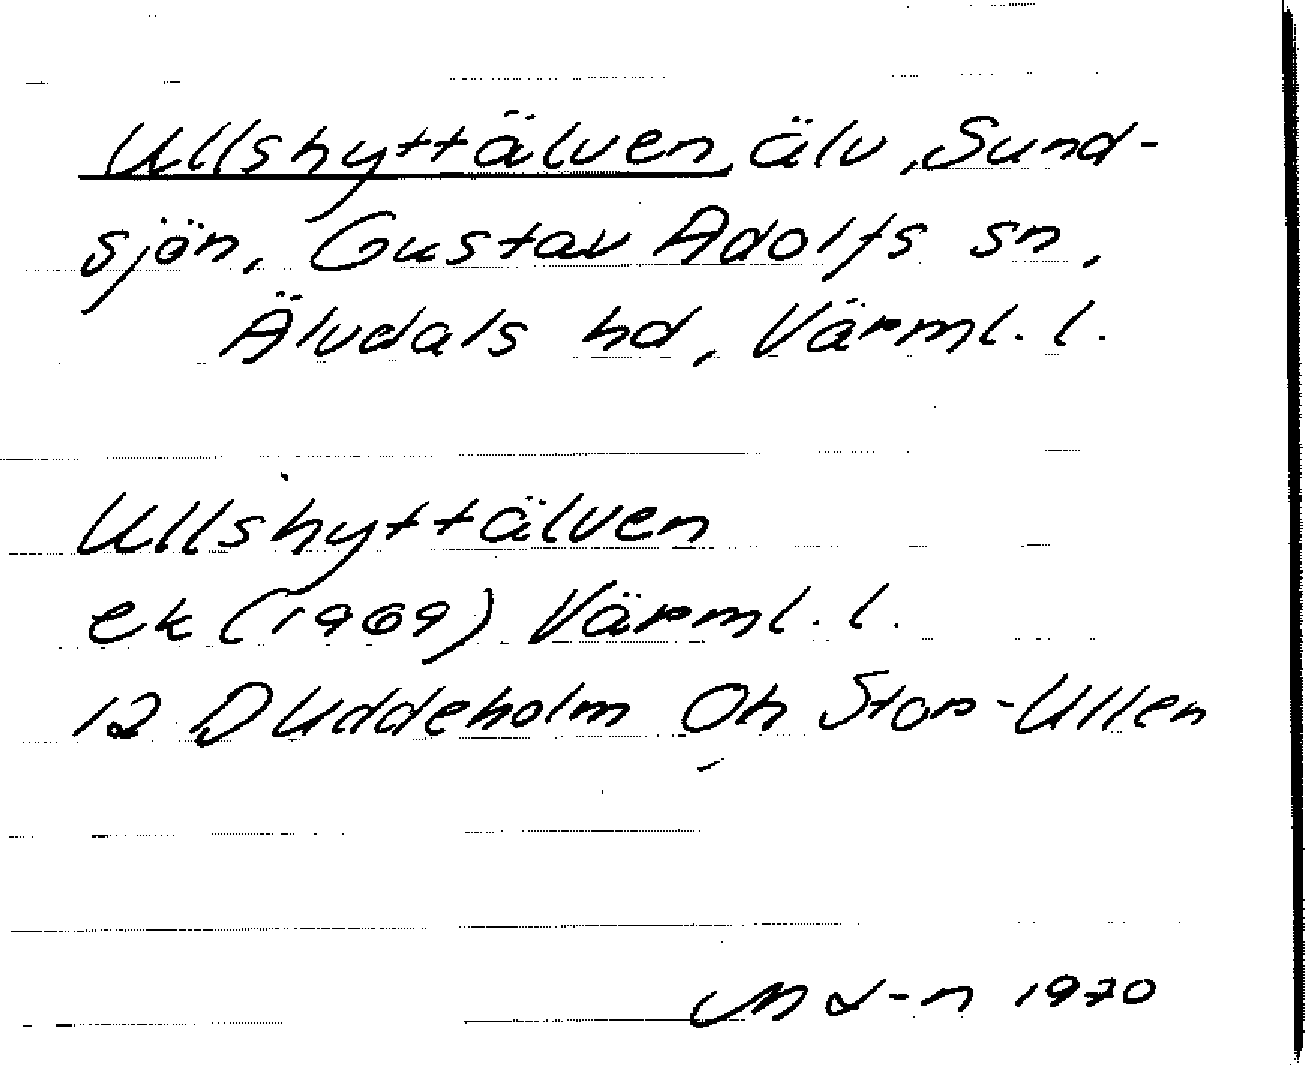 Ullshyttälven, älv, Sund-
sjön, Gustav Adolfs sn,
Älvdals hd, Värml. l.
Ullshyttälven
ek (1969) Värml. l.
12 D Uddeholm Öh Stor-Ullen
1970